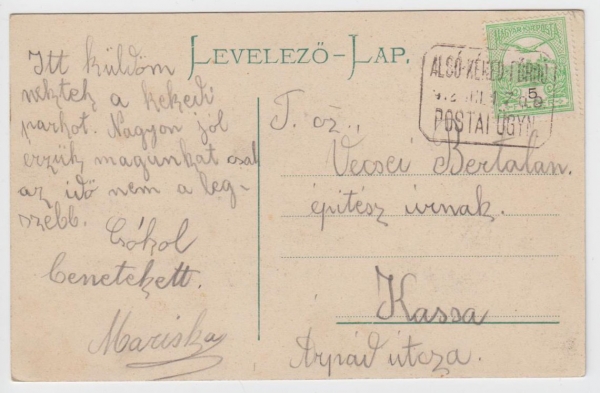 LEVELEZŐ-LAP.
Itt küldöm
nektek a kekedi
parkot. Nagyon jól
erzük magunkat csak
az idö nem a leg-
szebb.
Csókol
benetekett.
Mariska
MAGYAR KIR. POSTA
5
ALSÓ-KÉKED-FÜRDŐ
POSTAI ÜGYN
T. cz.,
Vécsei Bertalan.
épitész úrnak.
Kassa
Árpád útcza.